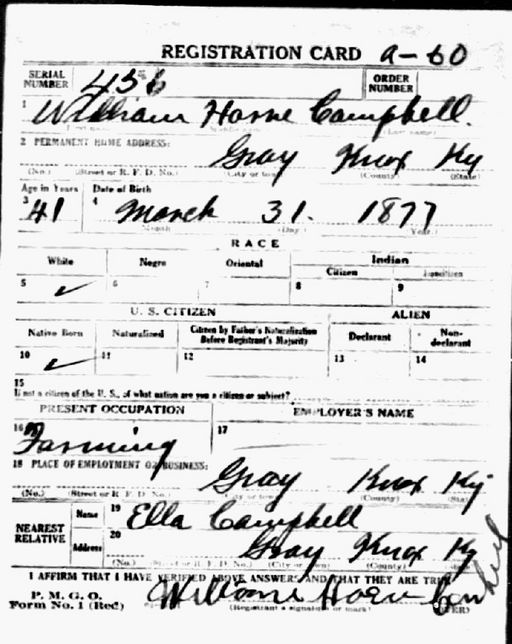 REGISTRATION CARD a-60
SERIAL NUMBER 456 ORDER NUMBER
1 William Horne Campbell.
2 PERMANENT HOME ADDRESS:
Gray Knox Ky
(No.) (Street or R. F. D. No.) (City or town) (County) (State)
Age in Years Date of Birth
3 41 4 March 31. 1877
Month (Day.) Year.
RACE
White Negro Oriental Indian
Citizen
5 ✓ 6 7 8 9
U. S. CITIZEN ALIEN
Native Born Naturalized Citizen by Father's Naturalization Before Registrant's Majority Declarant Non-declarant
10 ✓ 11 12 13 14
15
If not a citizen of the U. S., of what nation are you a citizen or subject?
PRESENT OCCUPATION EMPLOYER'S NAME
16 Farming 17
18 PLACE OF EMPLOYMENT OR BUSINESS:
Gray Knox Ky
(No.) (Street or R. F. D. No.) (City or town) (County) (State)
NEAREST RELATIVE Name 19 Ella Campbell
Address 20 Gray Knox Ky
(No.) (Street or R. F. D. No.) (City or town) (County) (State)
I AFFIRM THAT I HAVE VERIFIED ABOVE ANSWERS AND THAT THEY ARE TRUE
P. M. G. O.
Form No. 1 (Red) William Horn Campbell
(Registrant's signature or mark) (OVER)